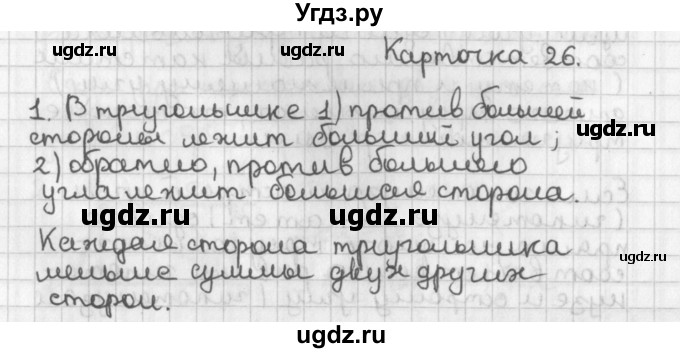 Угдз.ру
ugdz.ru ugdz.ru
Карточка 26.
1. В треугольнике 1) против большей
стороны лежит больший угол;
2) обратно, против большего
угла лежит большая сторона.
ugdz.ru ugdz.ru
Каждая сторона треугольника
меньше суммы двух других
сторон.
ugdz.ru ugdz.ru
ugdz.ru